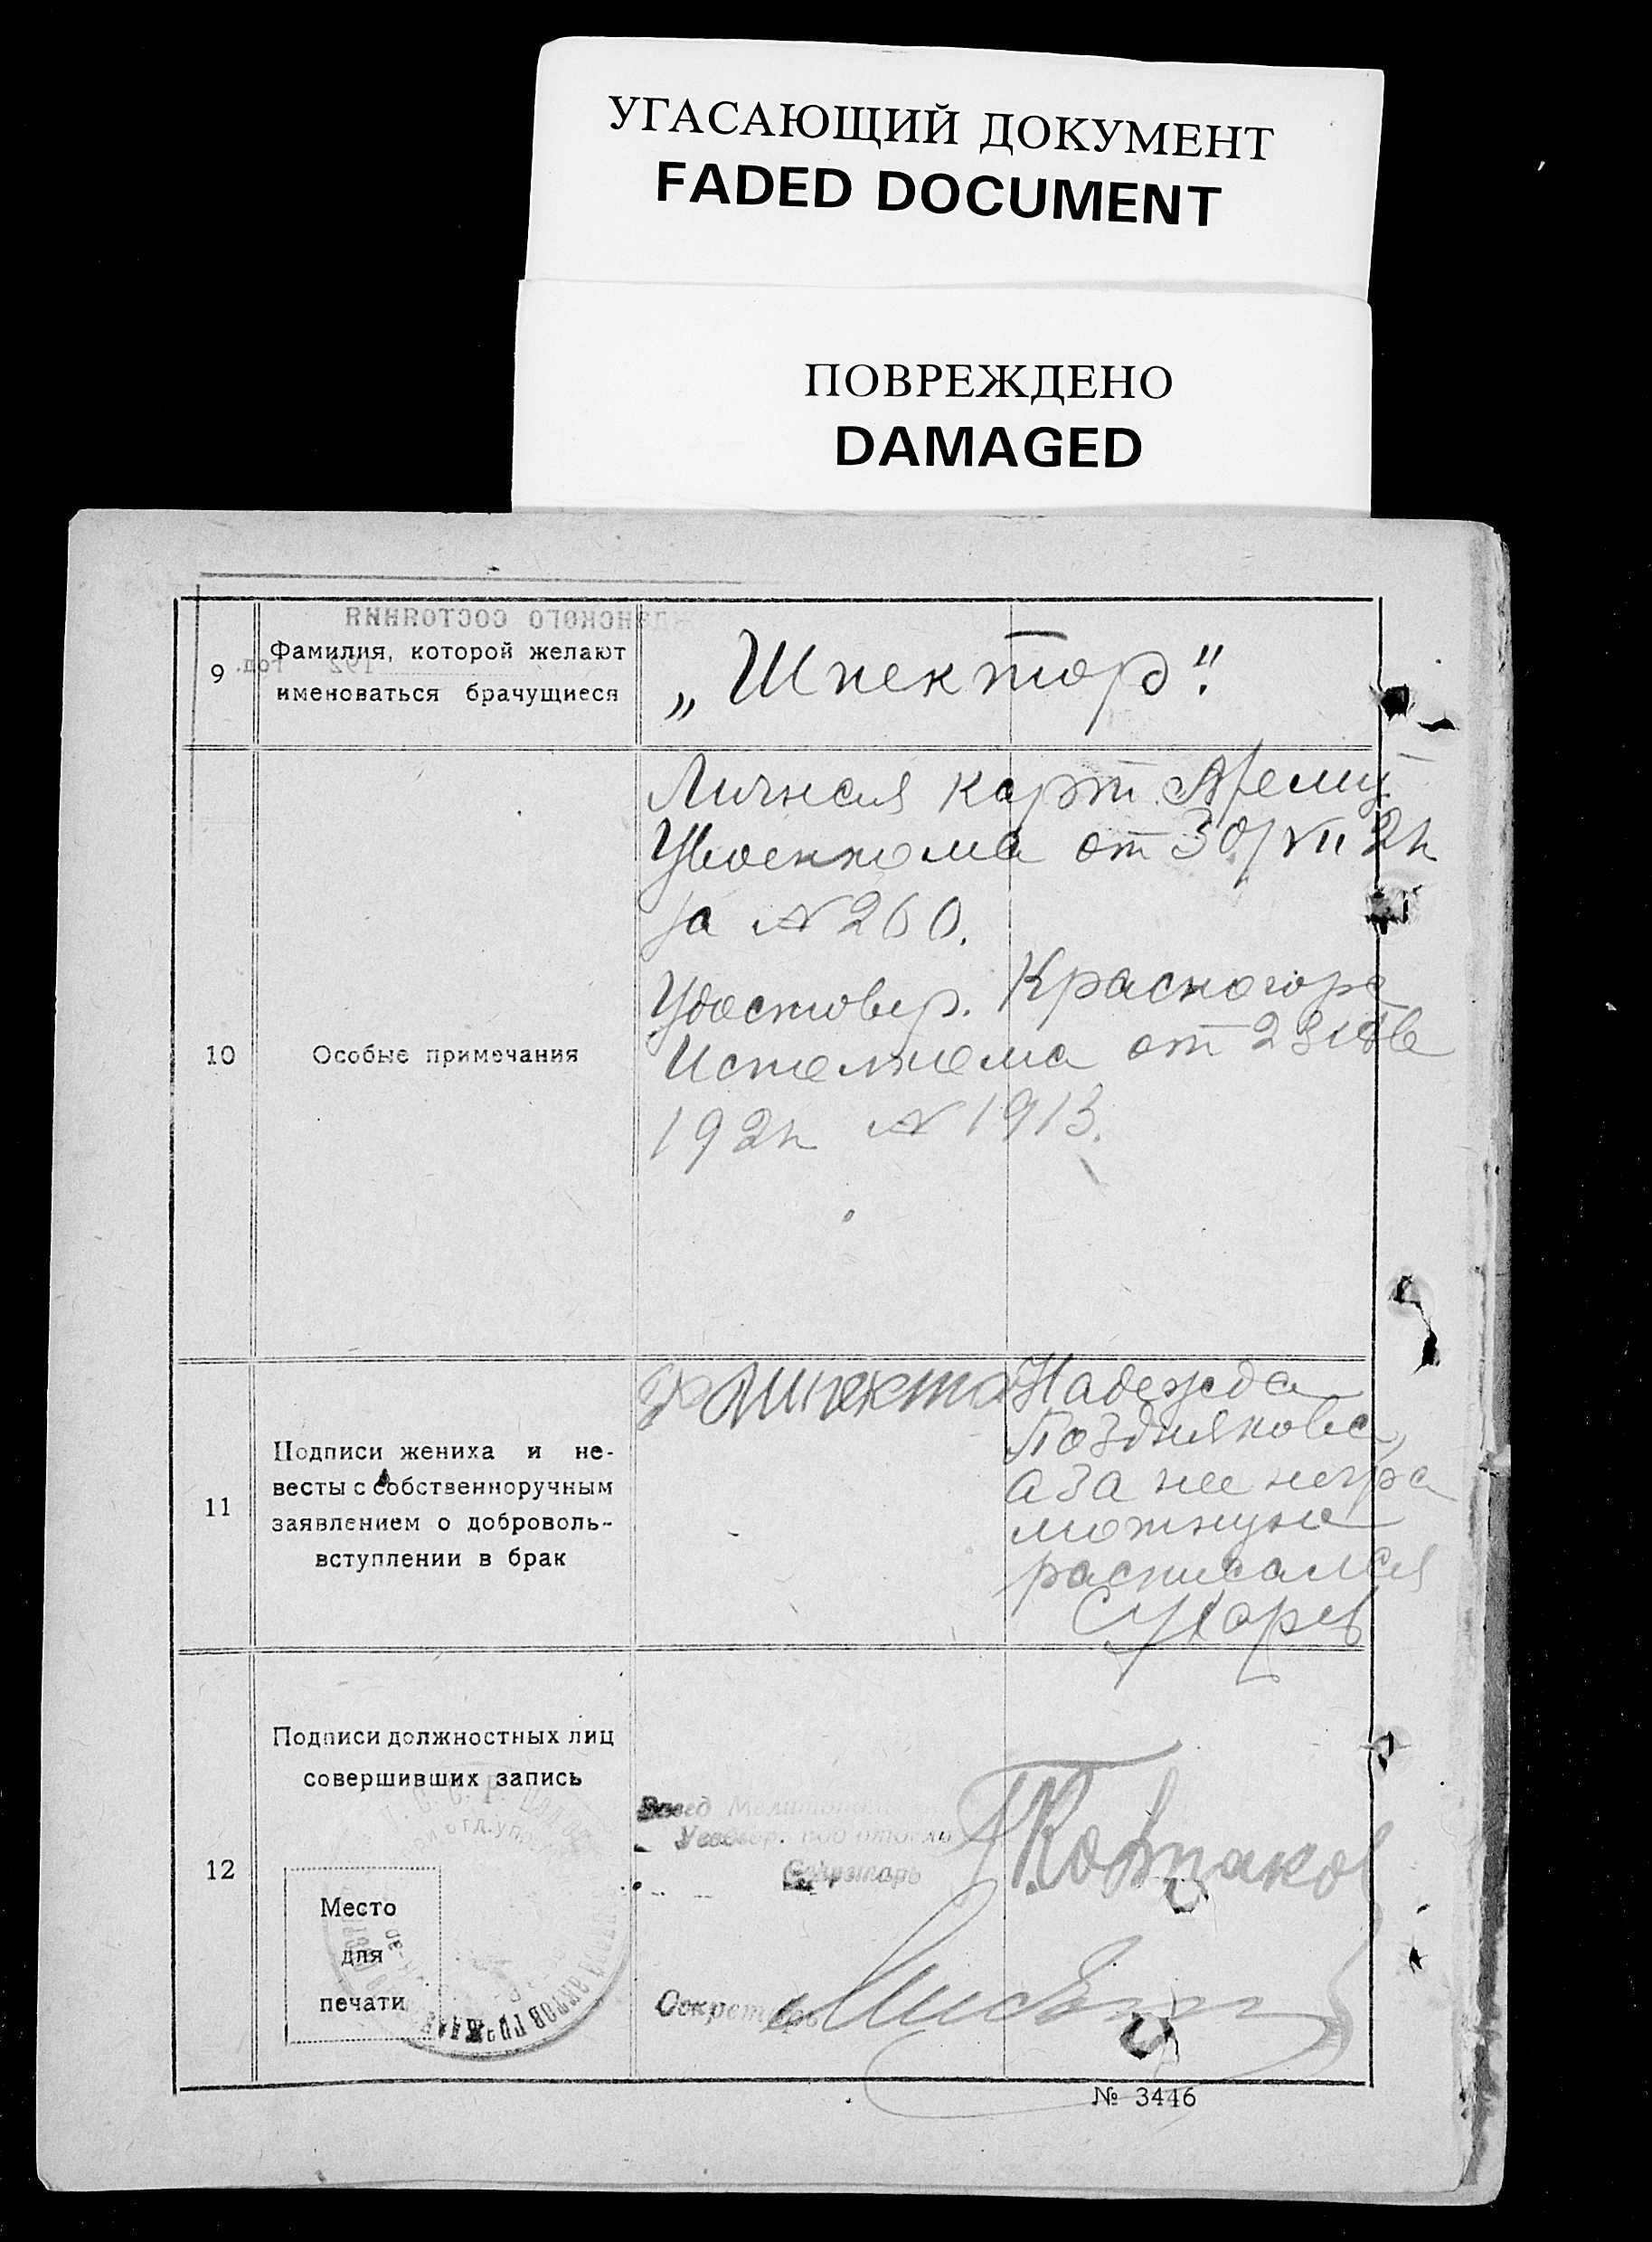 УГАСАЮЩИЙ ДОКУМЕНТ
FADED DOCUMENT
ПОВРЕЖДЕНО
DAMAGED
жданского состояния
192 год.
9
Фамилия, которой желают
именоваться брачущиеся
„Шпектор".
10
Особые примечания
Личная карт.
Увоенкома от 30/VII 2
за № 260.
Удостовер. Красногор
Исполкома от 23
192 № 1913.
11
Подписи жениха и не-
весты с собственноручным
заявлением о доброволь-
вступлении в брак
Шпекто
Надежда
Позднякова,
а за нее негра
мотную
расписался
12
Подписи должностных лиц
совершивших запись
Место
для
печати
Завед
Секретарь
Секретарь
№ 3446